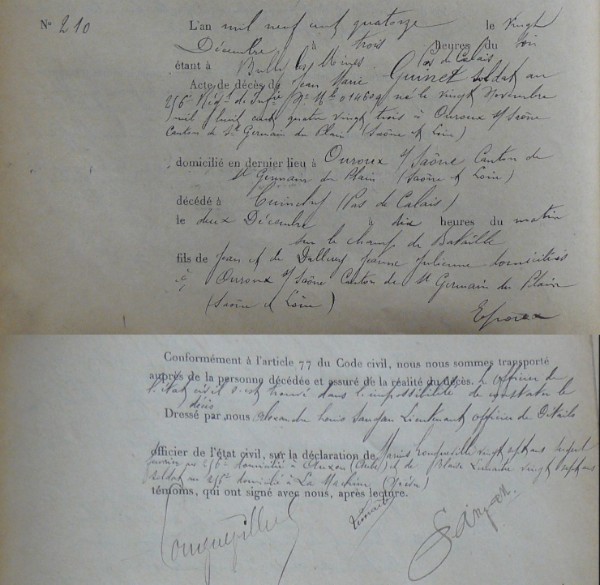 N° 210
L'an mil neuf cent quatorze le vingt
Décembre à trois heures du soir
étant à Bully les Mines Pas de Calais
Acte de décès de Jean Marie Guinet soldat au
256e Régt de Infie né le vingt Novembre
mil huit cent quatre vingt trois à Ouroux s/Saône
Canton de St Germain du Plain (Saône et Loire)
domicilié en dernier lieu à Ouroux s/Saône Canton de
St Germain du Plain (Saône et Loire)
décédé à Cuinchy (Pas de Calais)
le deux Décembre à dix heures du matin
sur le champ de Bataille
fils de Jean et de Jeanne Julienne domiciliés
à Ouroux s/Saône Canton de St Germain du Plain
(Saône et Loire)
Conformément à l'article 77 du Code civil, nous nous sommes transporté
auprès de la personne décédée et assuré de la réalité du décès. L'officier de
l'état civil s'est trouvé dans l'impossibilité de constater le
décès
Dressé par nous Louis Lieutenant officier de Détails
officier de l'état civil, sur la déclaration de vingt sept ans
au 256e domicilié à et de vingt sept ans
soldat au 256e domicilié à La Machine (Nièvre)
témoins, qui ont signé avec nous, après lecture.